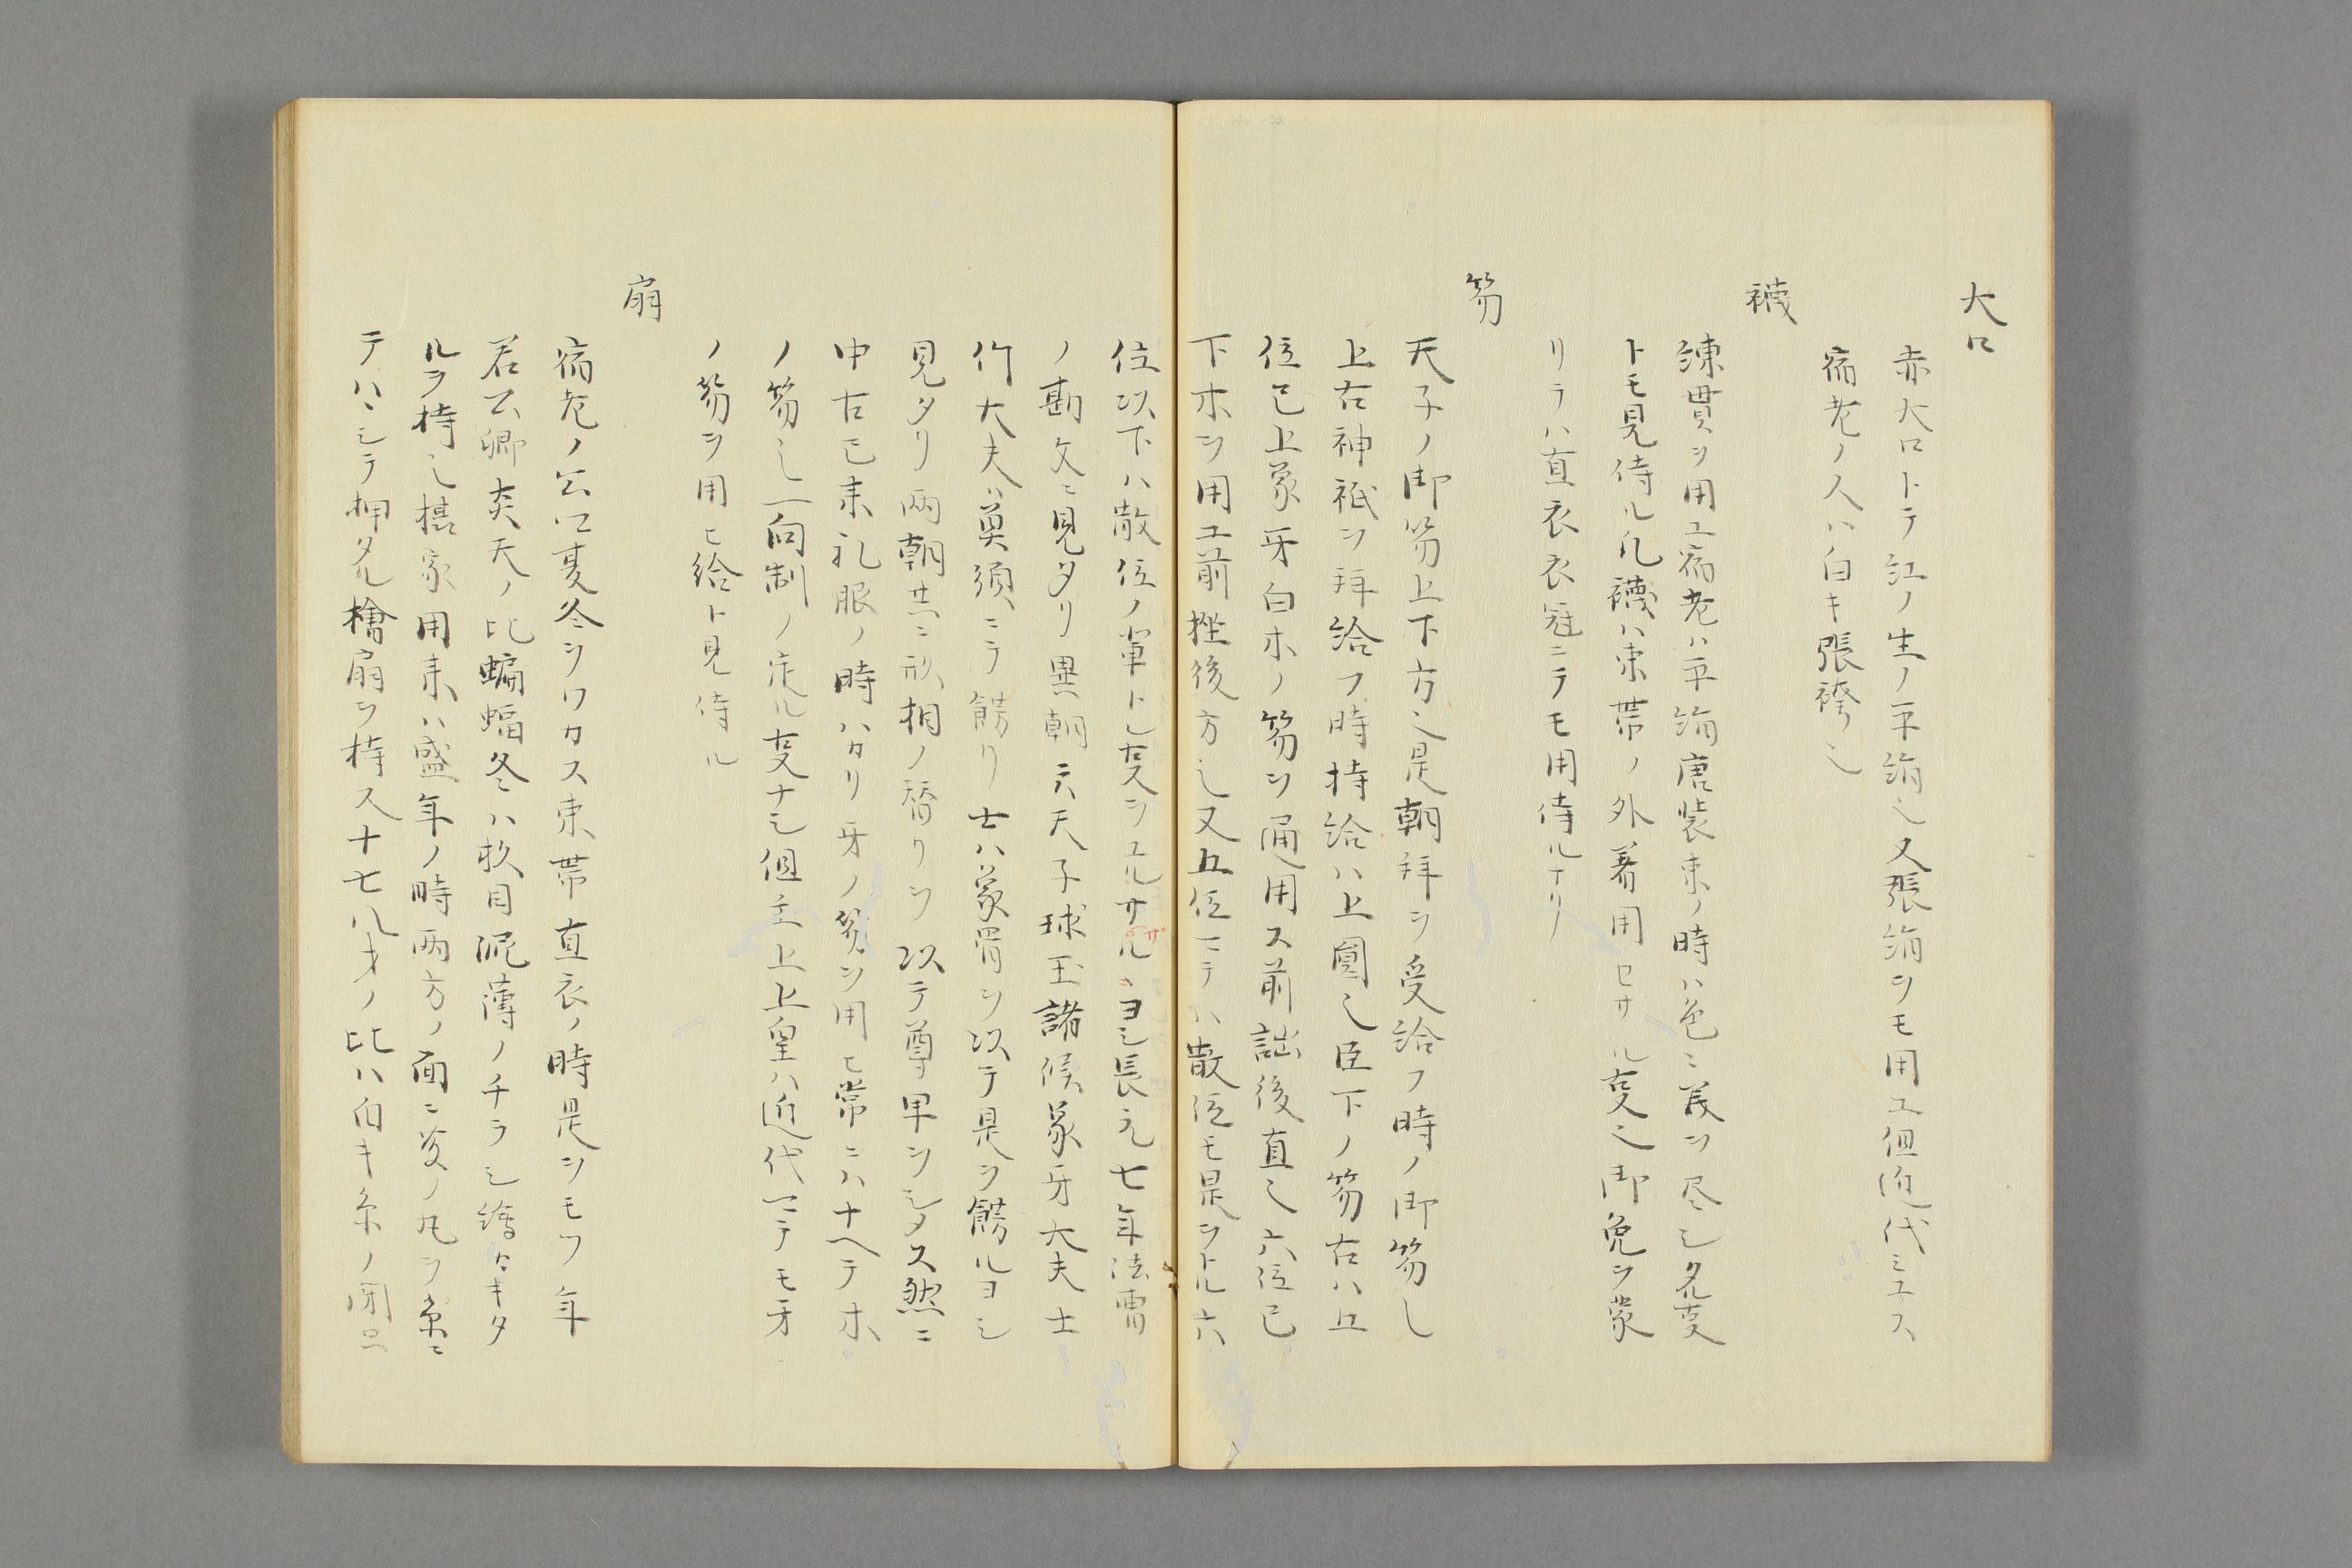 大口
赤大口トテ紅ノ生ノ平絹也又張絹ヲモ用ユ但近代ミエス
宿老ノ人ハ白キ張袴也
襪
練貫ヲ用ユ宿老ハ平絹唐装束ノ時ハ色々美ヲ尽シタル事
トモ見侍ル凡襪ハ束帯ノ外着用セサル事也御免ヲ蒙
リテハ直衣衣冠ニテモ用侍ルナリ
笏
天子ノ御笏上下方也是朝拜ヲ受給フ時ノ御笏也
上古神祇ヲ拜給フ時持給ハ上圓也臣下ノ笏古ハ五
位已上象牙白木ノ笏ヲ通用ス前詘後直也六位已
下木ヲ用ユ前挫後方也又五位ニテハ散位モ是ヲトル六
位以下ハ散位ノ軍トモ事ヲユルサルヽヨシ長元七年法曹
ノ勘文ニ見タリ異朝ニハ天子球玉諸候象牙大夫士
竹大夫ハ魚須ニテ餝リ士ハ象骨ヲ以テ是ヲ餝ルヨシ
見タリ両朝共ニ形相ノ替リヲ以テ尊卑ヲシメス然ニ
中古已来礼服ノ時ハカリ牙ノ笏ヲ用ヒ常ニハナヘテ木
ノ笏也一向制ノ定ル事ナシ但主上上皇ハ近代マテモ牙
ノ笏ヲ用ヒ給ト見侍ル
扇
宿老ノ公卿夏冬ヲワカス束帯直衣ノ時是ヲモツ年
若公卿炎天ノ比蝙蝠冬ハ杉目泥薄ノチラシ繪カキタ
ルヲ持也摂家用来ハ盛年ノ時両方ノ面ニ菱ノ丸ヲ糸ニ
テハヽシテ押タル檜扇ヲ持ス十七八才ノ比ハ白キ糸ノ閉